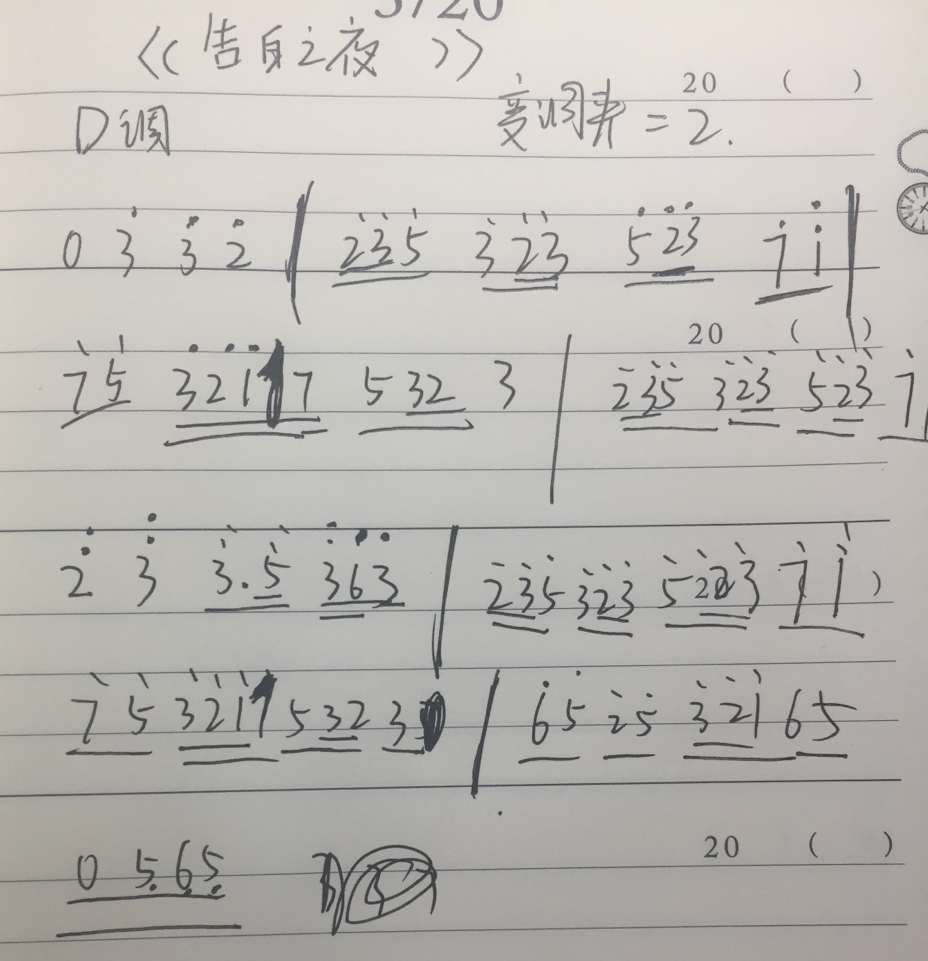 《告白之夜》
20 ( )
D调 变调夹=2.
0 3̇ 3̇ 2̇ | 2̇3̇5̇ 3̇2̇3̇ 5̇2̇3̇ 7̇ i̇ |
20 ( )
7̇ 5̇ 3̇2̇1̇ 7 5 32 3 | 2̇3̇5̇ 3̇2̇3̇ 5̇2̇3̇ 7̇
2̇ 3̇ 3̇.5̇ 3̇6̇3̇ | 2̇3̇5̇ 3̇2̇3̇ 5̇2̇3̇ 7̇ 1̇
7̇ 5̇ 3̇2̇1̇ 5 32 3 | 6̇ 5̇ 2̇5̇ 3̇2̇1̇ 65
0 5̣ 6̣ 5̣
20 ( )